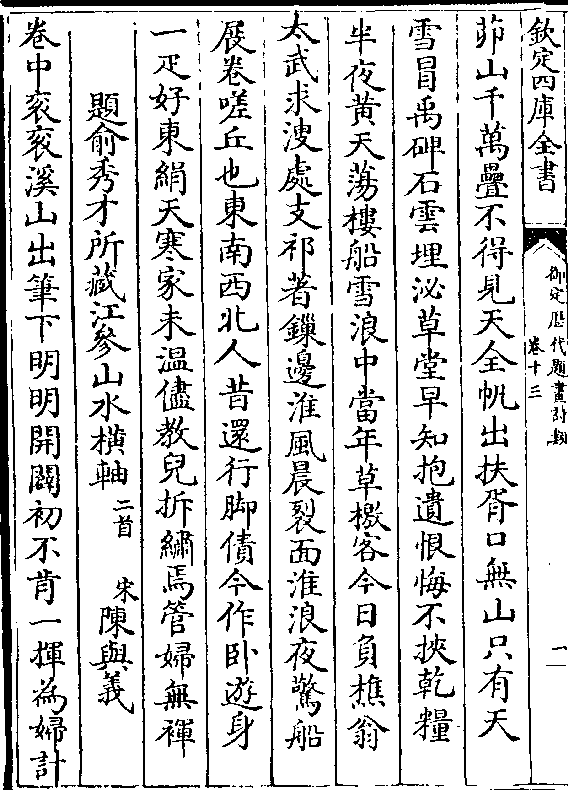 欽定四庫全書
御定歷代題畫詩類 卷十三
一
茆山千萬疊不得見天全帆出扶胥口無山只有天
雪冒禹碑石雲埋泌草堂早知抱遺恨悔不挾乾糧
半夜黃天蕩樓船雪浪中當年草檄客今日負樵翁
太武求洩處支祁著鏁邊淮風晨裂面淮浪夜驚船
展卷嗟丘也東南西北人昔還行脚債今作卧遊身
一疋好東絹天寒家未溫儘教兒拆繡焉管婦無褌
題俞秀才所藏江參山水橫軸二首 宋陳與義
卷中衮衮溪山出筆下明明開闢初不肯一揮為婦計